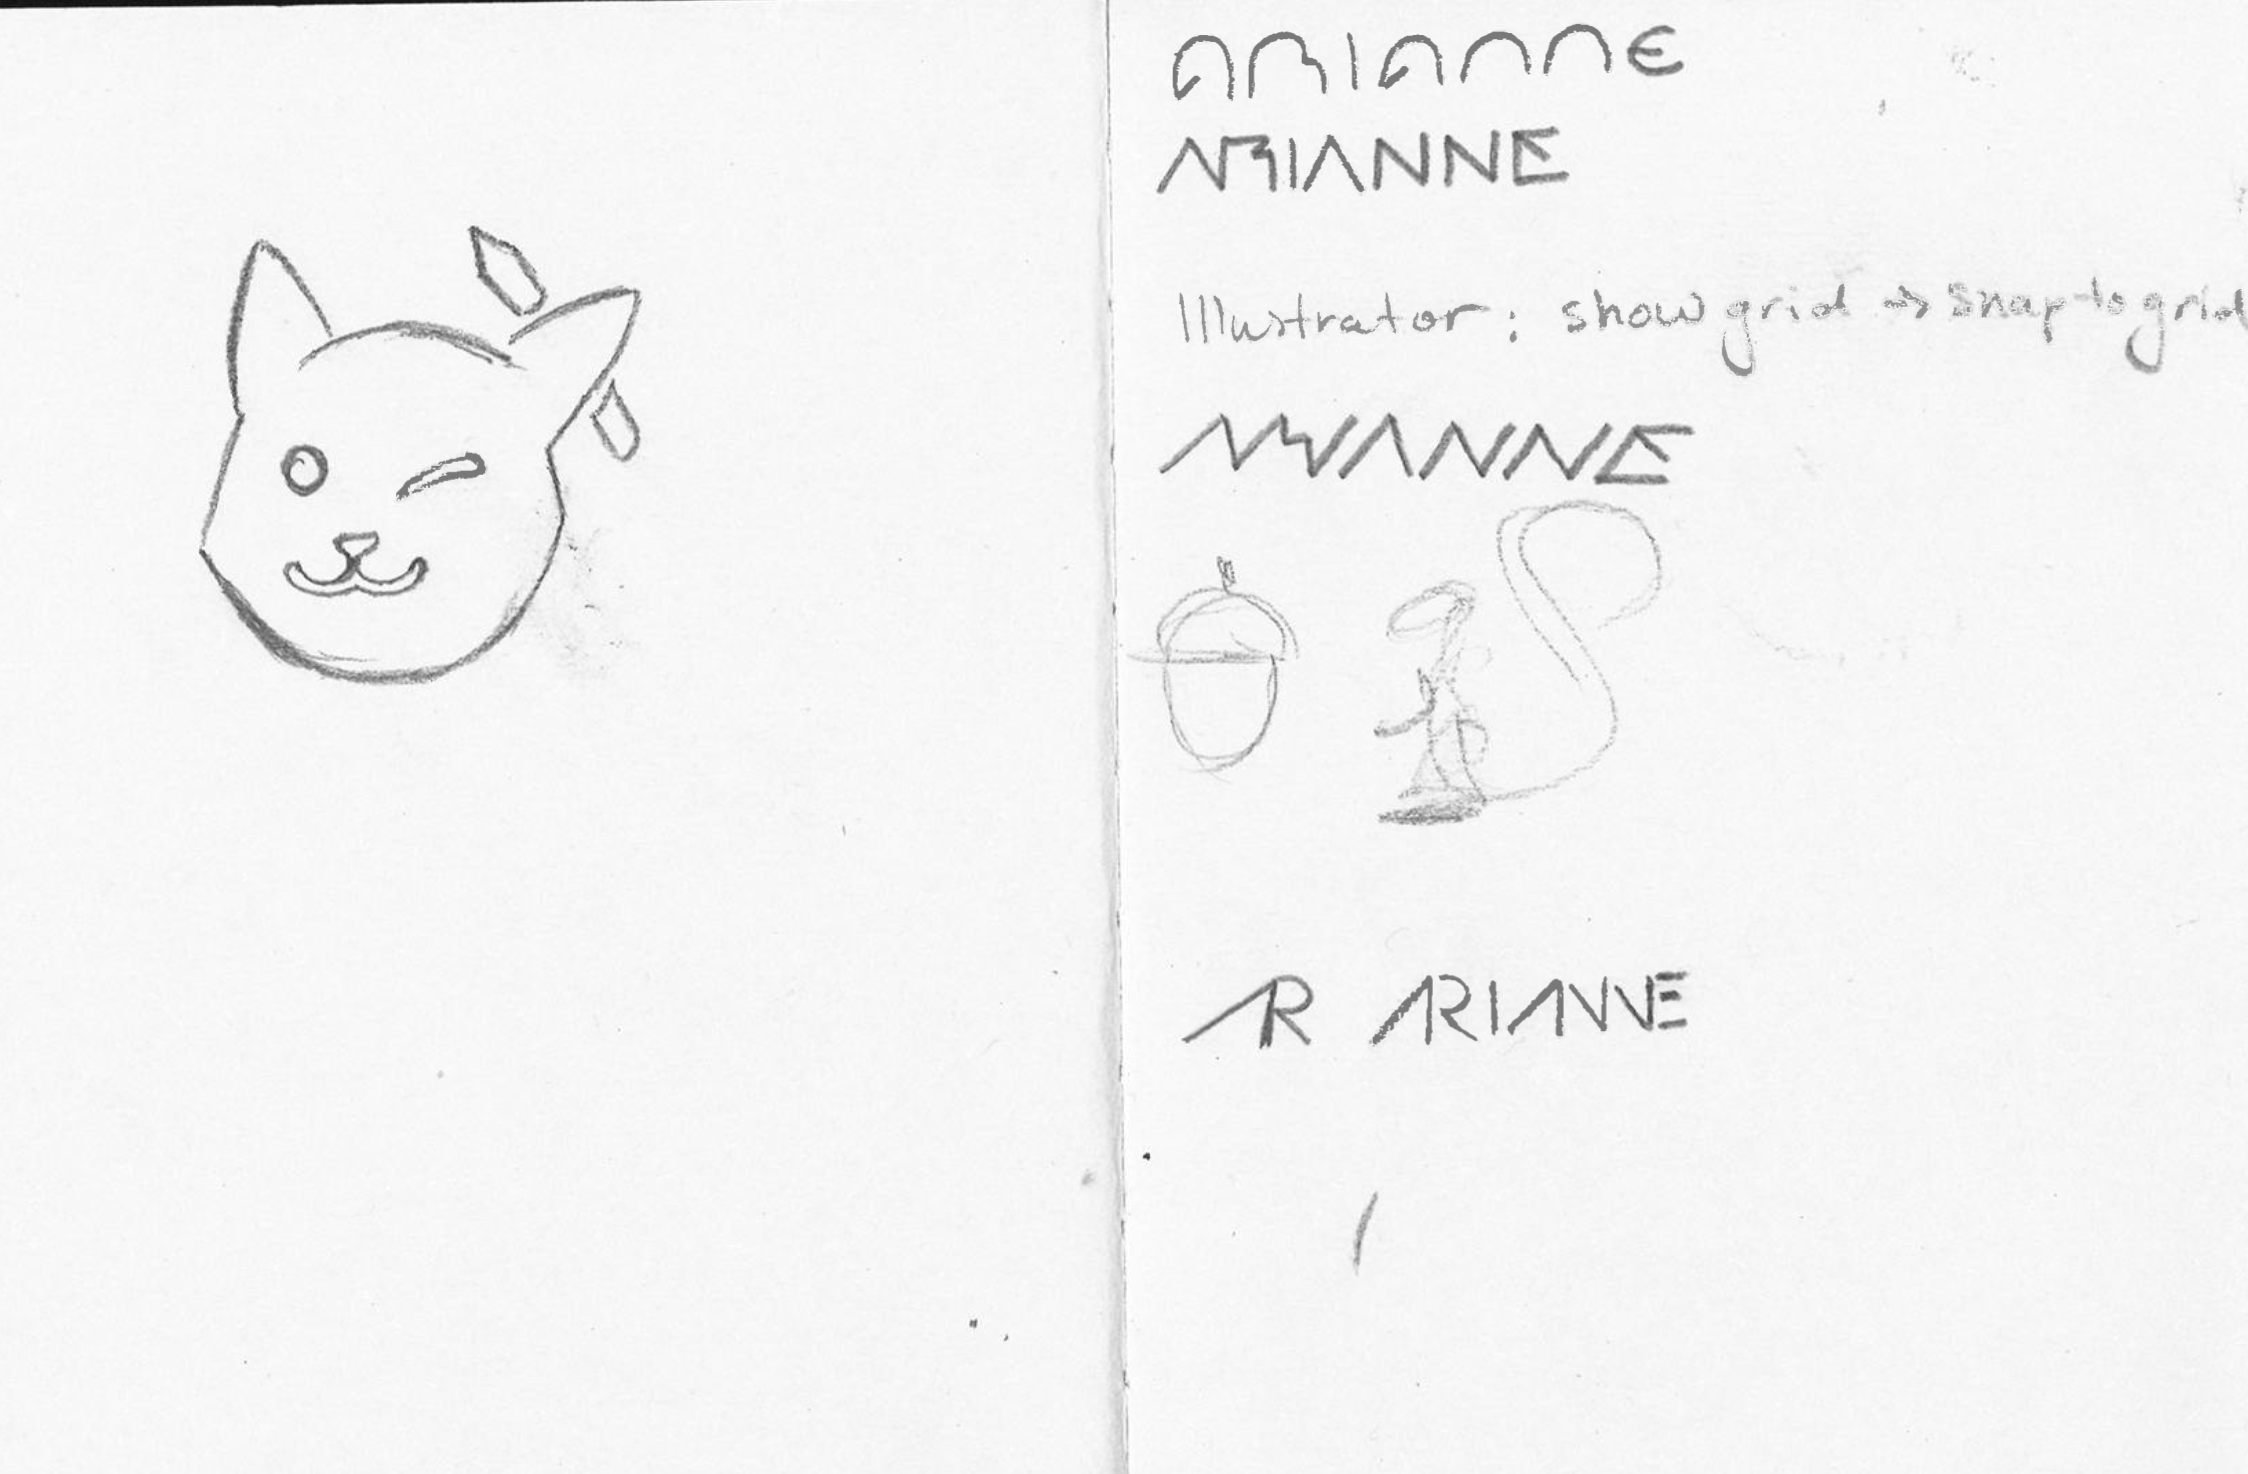 ARIANNE
ARIANNE
Illustrator: show grid → snap to grid
ARIANNE
AR ARIANNE